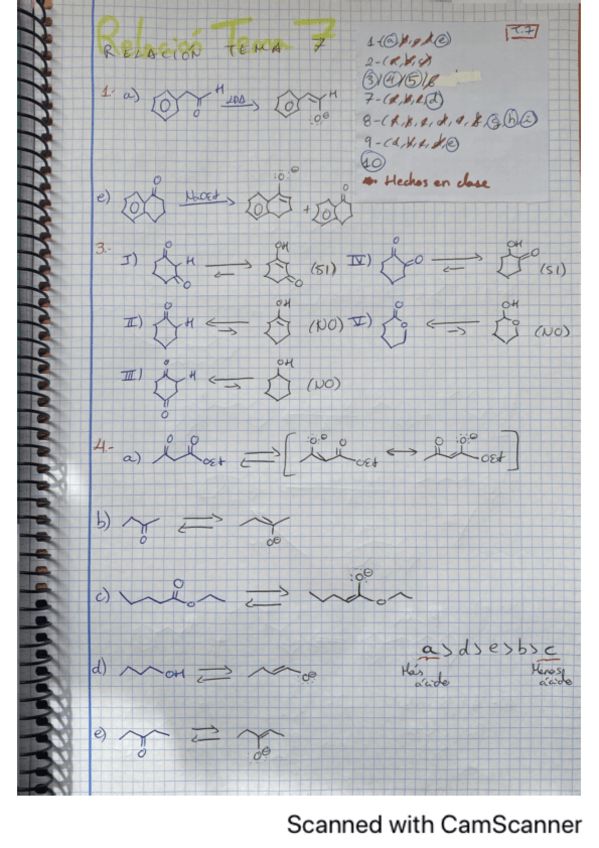 Relació Tema 7
RELACIÓN TEMA 7
T.7
2-(
3 4 5
7-( d)
8-( g h i)
9-( e)
10
Hechos en clase
1- a) O H LDA O⊖ H
e) O NaOEt O⊖ + O
3.-
I) O H O OH O (SI)
IV) O O OH O (SI)
II) O H OH (NO)
V) O O OH O (NO)
III) O H O OH (NO)
4.-
a) O O OEt O⊖ O OEt O O⊖ OEt
b) O O⊖
c) O O O⊖ O
a>d>e>b>c
Más ácido
Menos ácido
d) OH O⊖
e) O O⊖
Scanned with CamScanner